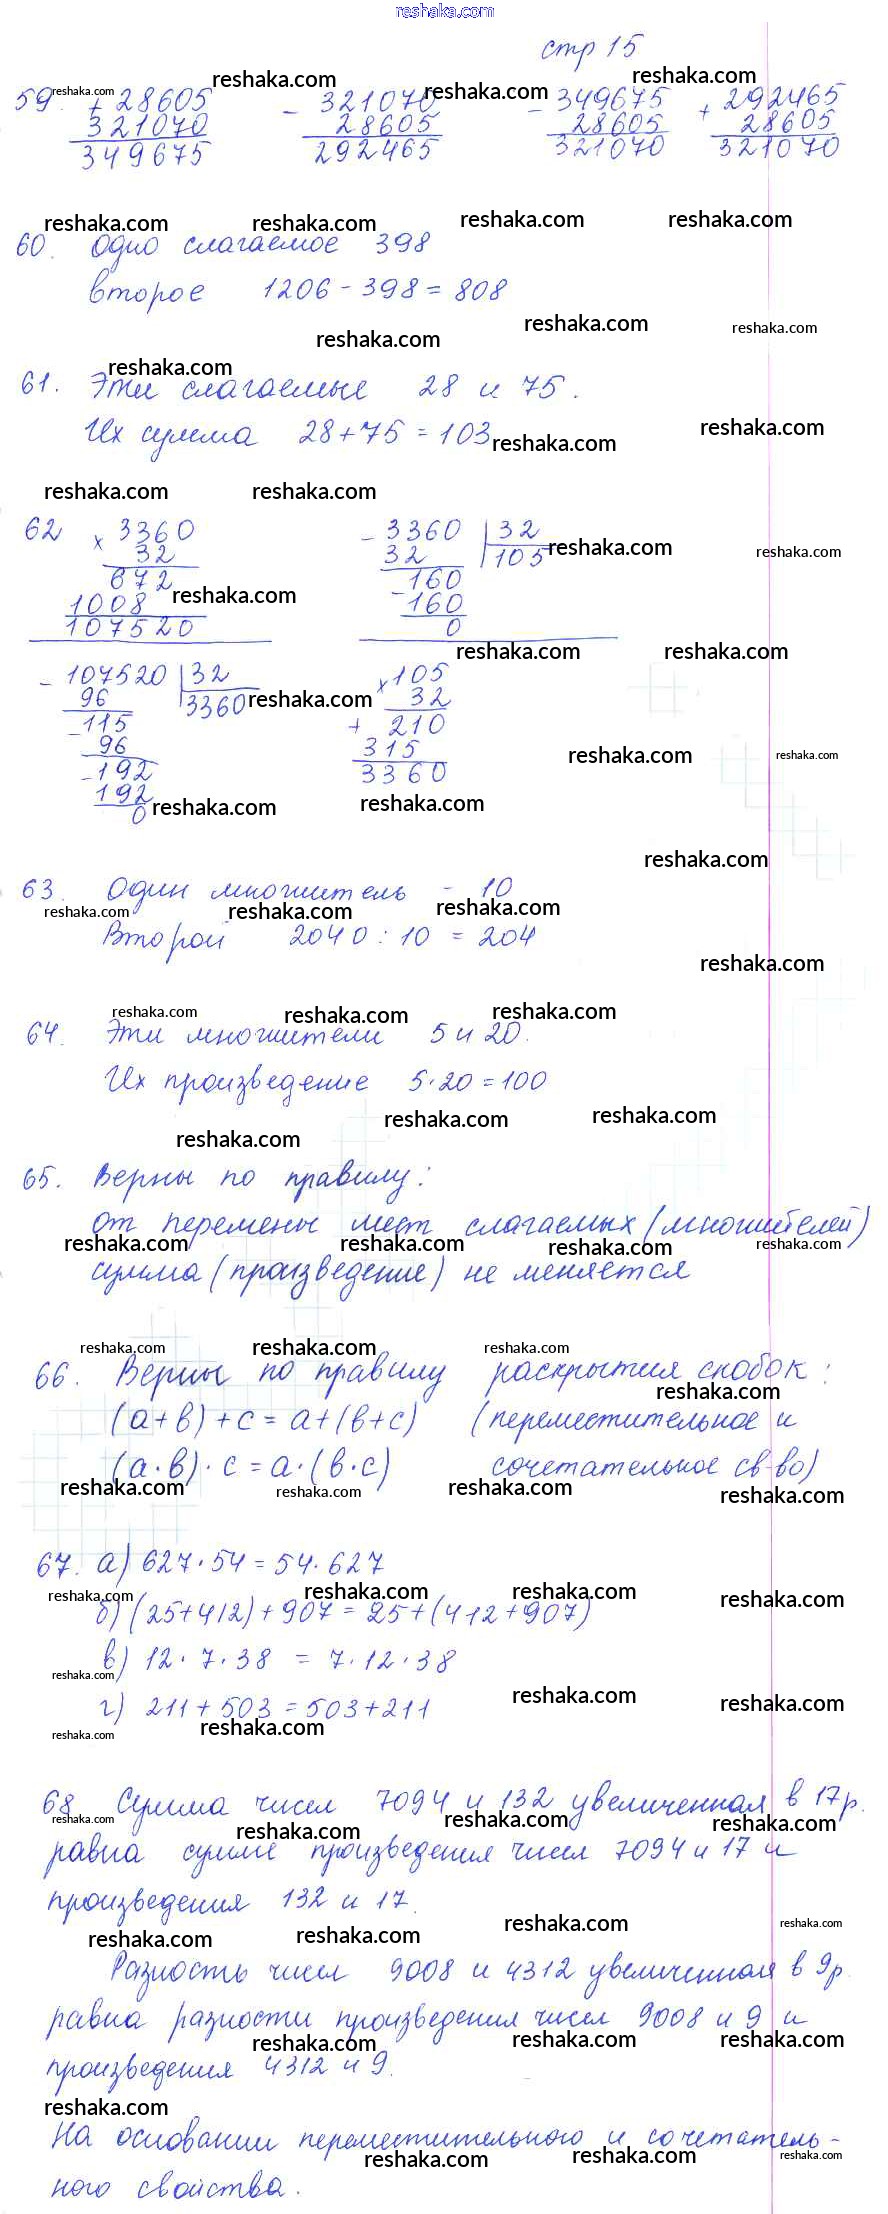 reshaka.com
стр 15
59. + 28605 - 321070 - 349675 + 292465
321070 28605 28605 28605
349675 292465 321070 321070
60. Одно слагаемое 398
второе 1206 - 398 = 808
61. Эти слагаемые 28 и 75.
Их сумма 28 + 75 = 103
62 × 3360 - 3360 32
32 32 105
672 160
1008 - 160
107520 0
- 107520 32 × 105
96 3360 32
- 115 + 210
96 315
- 192 3360
192
0
63. Один множитель - 10
Второй 2040 : 10 = 204
64. Эти множители 5 и 20.
Их произведение 5 · 20 = 100
65. Верны по правилу:
от перемены мест слагаемых (множителей)
сумма (произведение) не меняется
66. Верны по правилу раскрытия скобок:
(а + в) + с = а + (в + с) (переместительное и
(а · в) · с = а · (в · с) сочетательное св-во)
67. а) 627 · 54 = 54 · 627
б) (25 + 412) + 907 = 25 + (412 + 907)
в) 12 · 7 · 38 = 7 · 12 · 38
г) 211 + 503 = 503 + 211
68 Сумма чисел 7094 и 132 увеличенная в 17 р.
равна сумме произведения чисел 7094 и 17 и
произведения 132 и 17.
Разность чисел 9008 и 4312 увеличенная в 9 р.
равна разности произведения чисел 9008 и 9 и
произведения 4312 и 9.
На основании переместительного и сочетатель-
ного свойства.